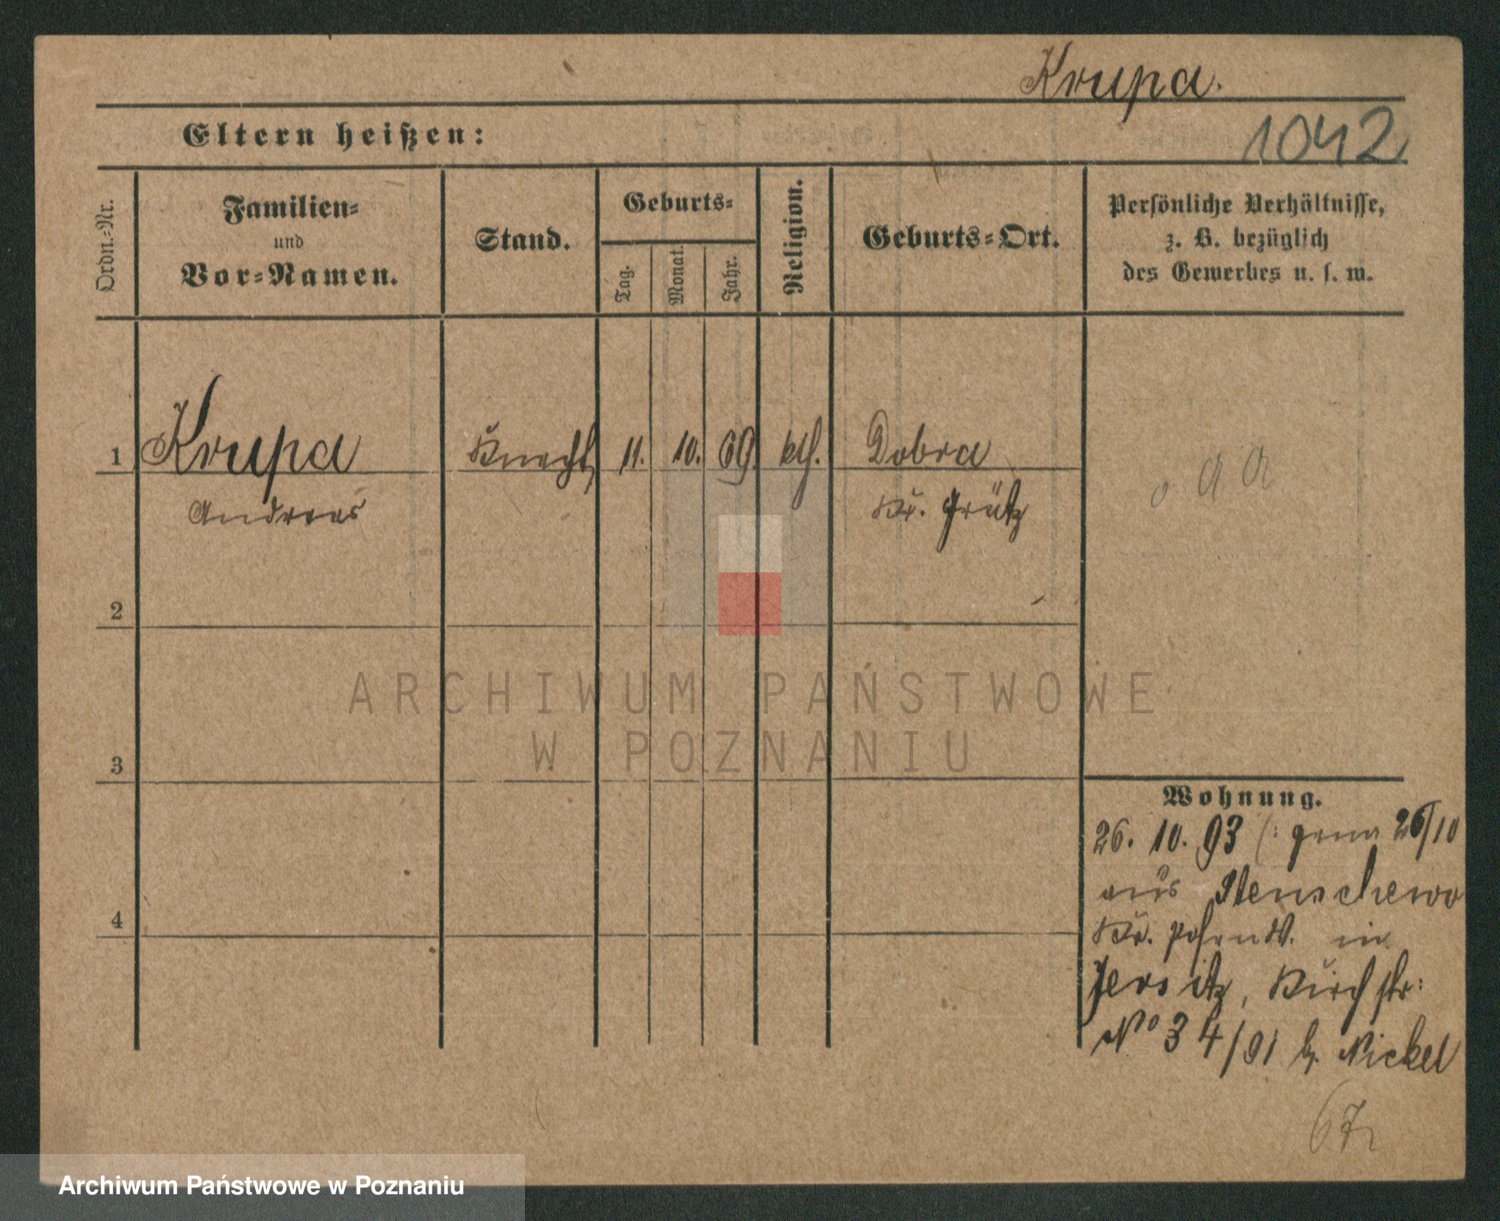 Krupa.
Eltern heißen:
1042
Ordn.-Nr.
Familien-
und
Vor-Namen.
Stand.
Geburts-
Tag.
Monat.
Jahr.
Religion.
Geburts-Ort.
Persönliche Verhältnisse,
z. B. bezüglich
des Gewerbes u. s. w.
1 Krupa Knecht 11. 10. 69. kth. Dobra
Andreas Kr. Grätz
2
3
4
Wohnung.
26. 10. 93 (: 26/10
aus Stenschewo
Kr. Posen W. in
Jersitz, Kirchstr:
No 34/91 b. Nickel
67
ARCHIWUM PAŃSTWOWE
W POZNANIU
Archiwum Państwowe w Poznaniu